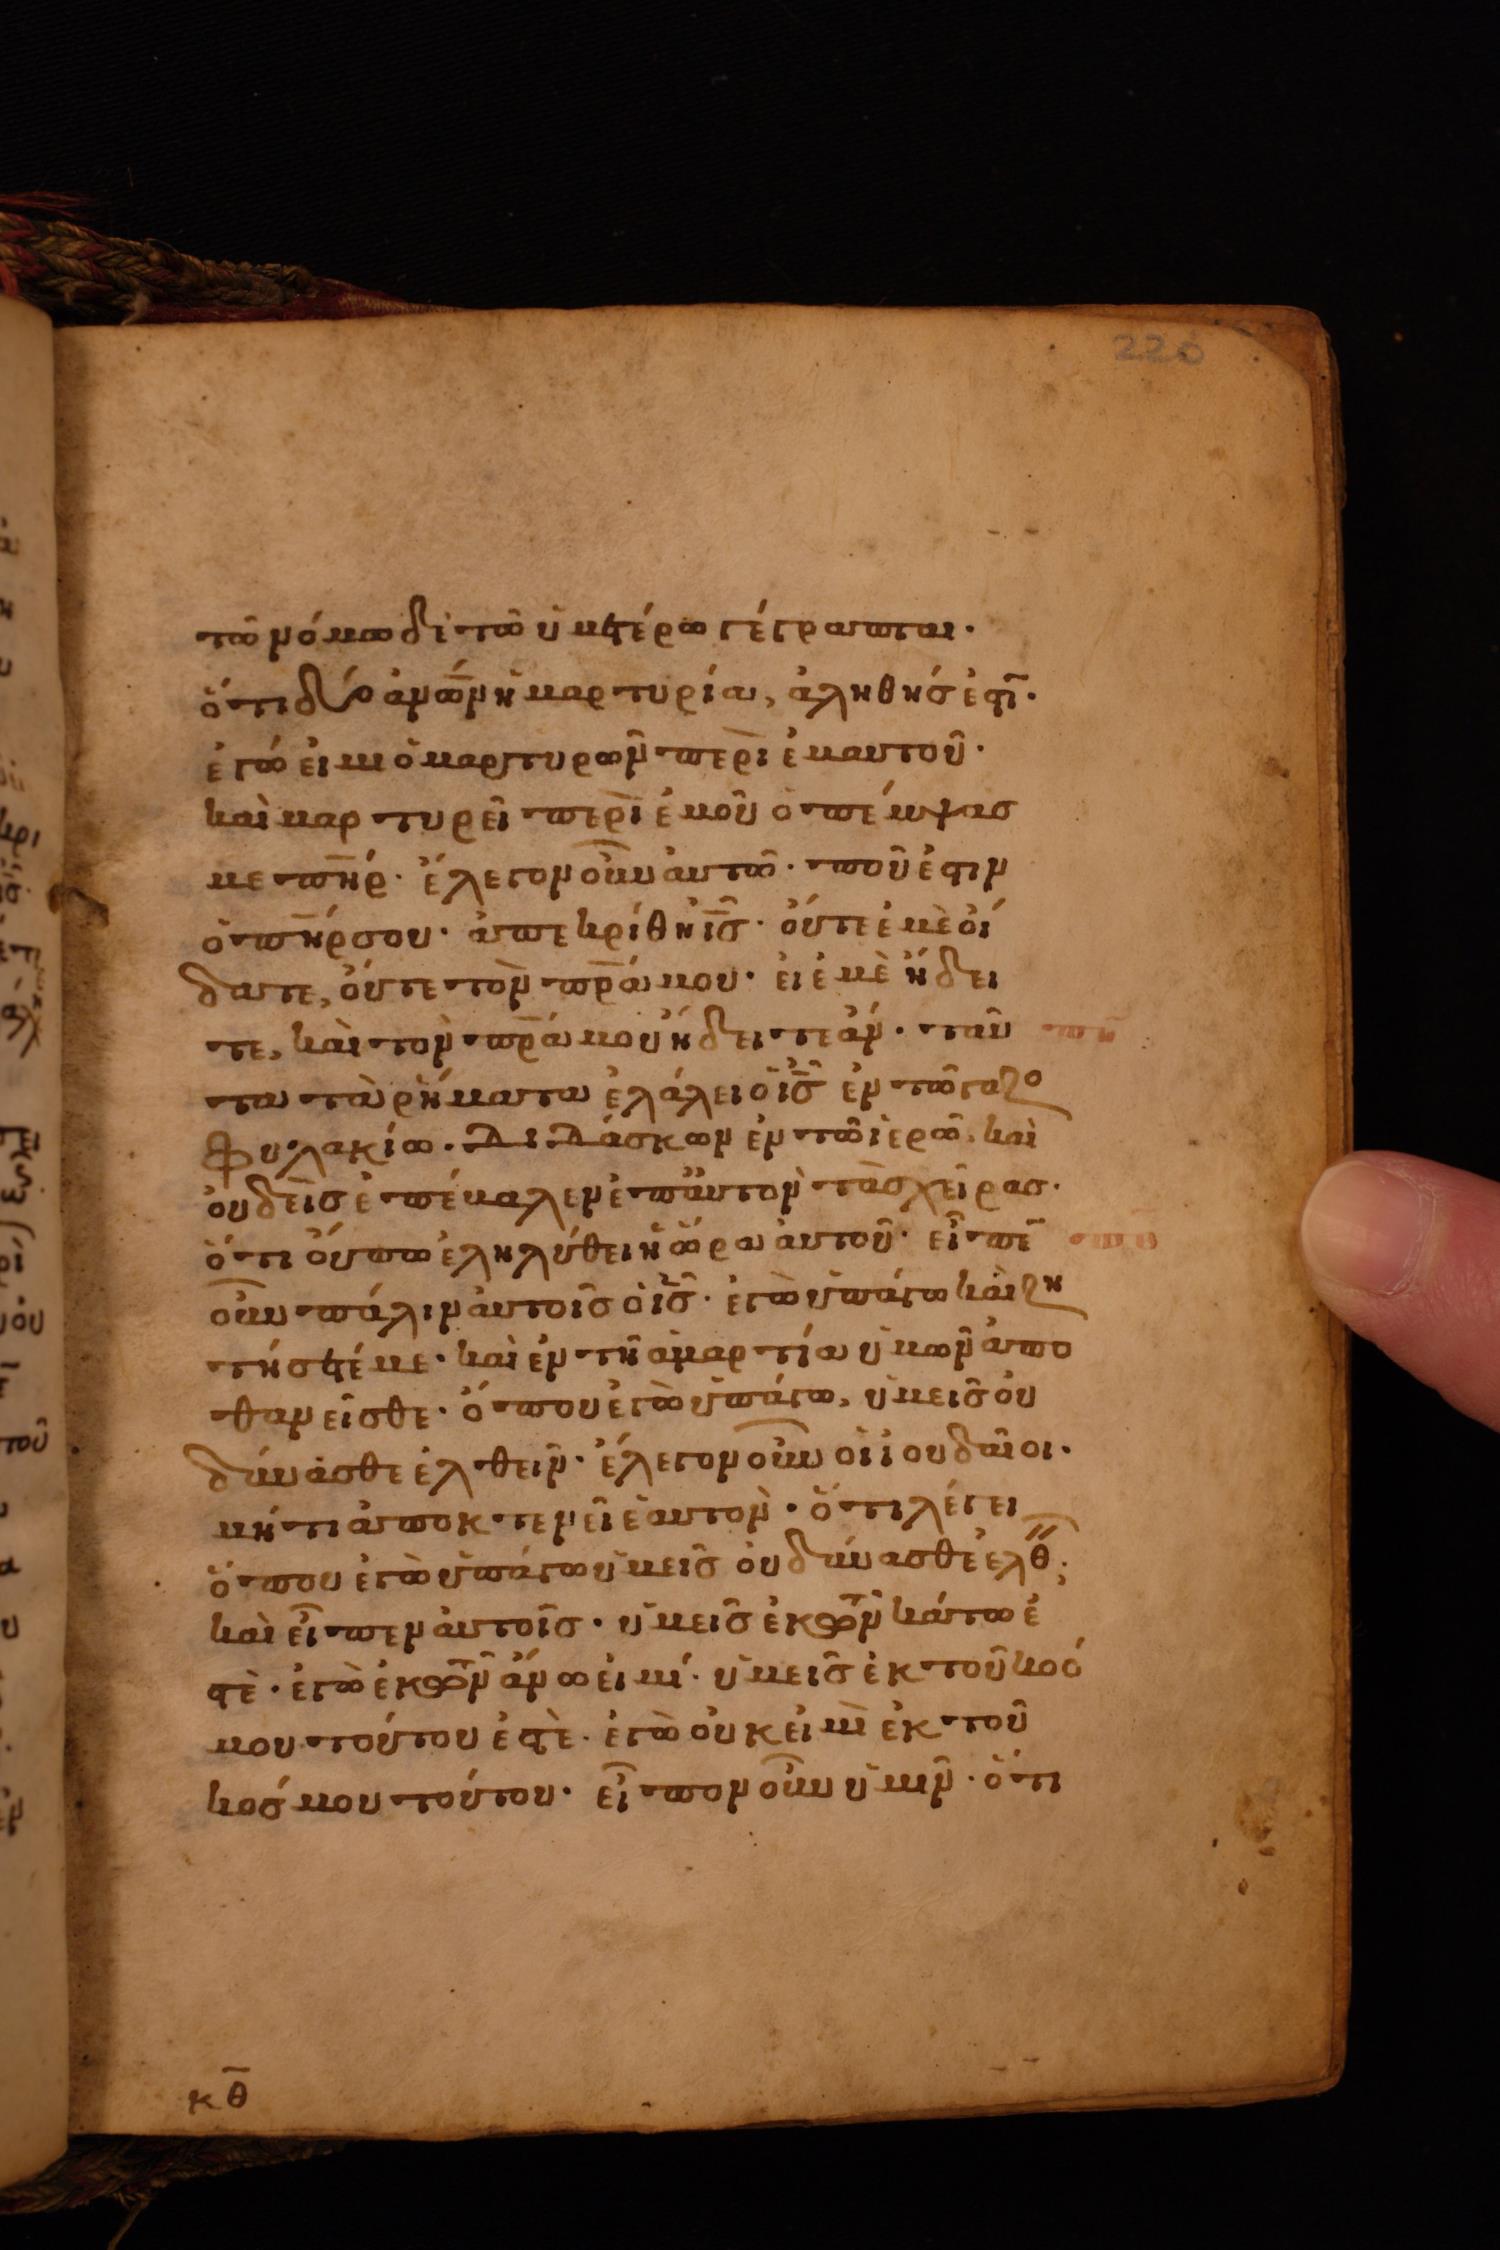 226
τῶ νόμω δὲ τῶ ὑμετέρω γέγραπται·
ὅτι δύο ἀν̅ω̅ν̅ ἡ μαρτυρία, ἀληθής ἐστι·
ἐγώ εἰμι ὁ μαρτυρῶν περὶ ἐμαυτοῦ·
καὶ μαρτυρεῖ περὶ ἐμοῦ ὁ πέμψασ
με π̅η̅ρ· ἔλεγον οὖν αὐτῶ· ποῦ ἐστιν
ὁ π̅η̅ρ σου· ἀπεκρίθη ι̅ς̅· οὔτε ἐμὲ οἴ
δατε, οὔτε τὸν π̅ρ̅α μου· εἰ ἐμὲ ἤδει
τε, καὶ τὸν π̅ρ̅α μου ἤδειτε ἄν· ταῦ
τα τὰ ρήματα ἐλάλει ὁ ι̅ς̅ ἐν τῶ γαζο
φυλακίω· διδάσκων ἐν τῶ ἱερῶ, καὶ
οὐδεὶσ ἐπέβαλεν ἐπ' αὐτὸν τὰσ χεῖρασ·
ὅτι οὔπω ἐληλύθει ἡ ὥρα αὐτοῦ· εἶπε
οὖν πάλιν αὐτοῖσ ὁ ι̅ς̅· ἐγὼ ὑπάγω καὶ ζη
τήσετέ με· καὶ ἐν τῆ ἁμαρτία ὑμῶν ἀπο
θανεῖσθε· ὅπου ἐγὼ ὑπάγω, ὑμεῖσ οὐ
δύνασθε ἐλθεῖν· ἔλεγον οὖν οἱ ἰουδαῖοι·
μήτι ἀποκτενεῖ ἑαυτὸν· ὅτι λέγει
ὅπου ἐγὼ ὑπάγω ὑμεῖσ οὐ δύνασθε ἐλθ;
καὶ εἶπεν αὐτοῖσ· ὑμεῖσ ἐκ τῶν κάτω ἐ
στὲ· ἐγὼ ἐκ τῶν ἄνω εἰμί· ὑμεῖσ ἐκ τοῦ κόσ
μου τούτου ἐστὲ· ἐγὼ οὐκ εἰμὶ ἐκ τοῦ
κόσμου τούτου· εἶπον οὖν ὑμῖν· ὅτι
κθ̅